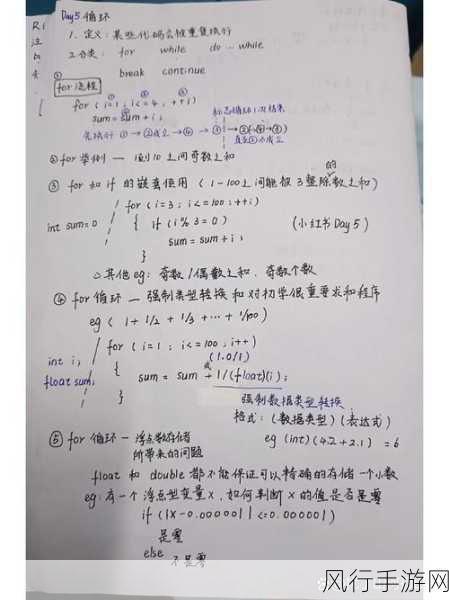 Day5 循环
1. 定义：某些代码会被重复执行
2. 分类： for while do … while
break continue
① for 流程
① ② ③
for ( i=1 ; i<=4 ; ++i )
④ sum = sum + i ;
标志循环1次结束
先执行 ① → ②成立 → ④ → ③
直至②不成立
② for 举例 — 1到10之间奇数之和
③ for 和 if 的嵌套使用 ( 1-100之间能被3整除的数之和 )
for ( i=3 ; i<=100 ; ++i )
int sum=0 { if ( i % 3 = 0 ) (小红书 Day 5 )
sum = sum + i ;
}
△其他eg: 奇数/偶数之和、奇数个数
④ for 循环 — 强制类型转换 和对初学很重要求和程序
eg ( 1 + 1/2 + 1/3 + … + 1/100 )
int i ; for ( i=1 ; i <=100 ; i++ )
float sum ; { 或 (1.0/i)
sum = sum + 1/(float)(i) ;
}
强制数据类型转换
格式：(数据类型) (表达式)
eg (int) (4.2+2.1) = 6
⑤ for 循环 — 浮点数存储
所带来的问题
float 和 double 都不能保证可以精确的存储一个小数
eg: 有一个浮点型变量X，如何判断X的值是否是零
if ( |X-0.000001| <=0.000001 )
是零
else 不是零
风行手游网